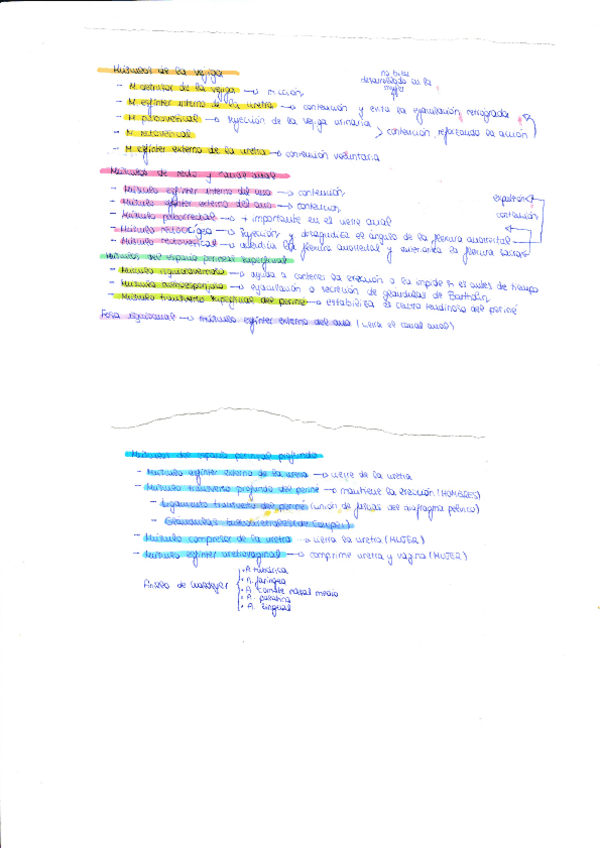 Músculos de la vejiga
no bien
desarrollado en la
mujer
- M detrusor de la vejiga → micción
- M esfínter interno de la uretra → contención y evita la eyaculación retrógrada
- M pubovesical → sujeción de la vejiga urinaria
- M rectovesical > contención, reforzando la acción
- M esfínter externo de la uretra → contención voluntaria
Músculos de recto y canal anal
- Músculo esfínter interno del ano → contención
- Músculo esfínter externo del ano → contención
- Músculo puborrectal → + importante en el cierre anal
- Músculo rectococcígeo → sujeción y desagudiza el ángulo de la flexura anorrectal
- Músculo rectovesical → la flexura anorrectal y la flexura sacra
expulsión
contención
Músculos del espacio perineal superficial
- Músculo isquiocavernoso → ayuda a contener la erección o la impide si es antes de tiempo
- Músculo bulboesponjoso → eyaculación o secreción de glándulas de Bartholin
- Músculo transverso superficial del periné → estabiliza el centro tendinoso del periné
Fosa isquioanal → músculo esfínter externo del ano (cierra el canal anal)
Músculos del espacio perineal profundo
- Músculo esfínter externo de la uretra → cierre de la uretra
- Músculo transverso profundo del periné → mantiene la erección (HOMBRES)
- Ligamento transverso del periné (unión de fascias del diafragma pélvico)
- Glándulas bulbouretrales (de Cowper)
- Músculo compresor de la uretra → cierra la uretra (MUJER)
- Músculo esfínter uretrovaginal → comprime uretra y vagina (MUJER)
Anillo de Waldeyer
• A tubárica
• A. faríngea
• A. cornete nasal medio
• A. palatina
• A. lingual